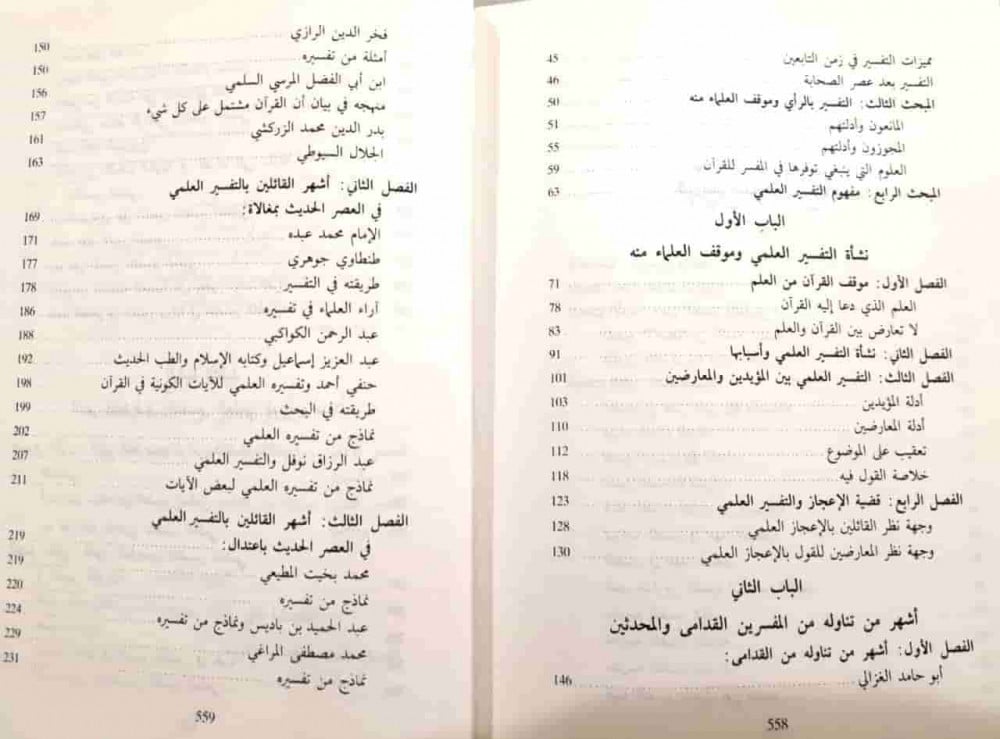 مميزات التفسير في زمن التابعين 45
التفسير بعد عصر الصحابة 46
المبحث الثالث: التفسير بالرأي وموقف العلماء منه 50
المانعون وأدلتهم 51
المجوزون وأدلتهم 55
العلوم التي ينبغي توفرها في المفسر للقرآن 59
المبحث الرابع: مفهوم التفسير العلمي 63
الباب الأول
نشأة التفسير العلمي وموقف العلماء منه
الفصل الأول: موقف القرآن من العلم 71
العلم الذي دعا إليه القرآن 78
لا تعارض بين القرآن والعلم 83
الفصل الثاني: نشأة التفسير العلمي وأسبابها 91
الفصل الثالث: التفسير العلمي بين المؤيدين والمعارضين 101
أدلة المؤيدين 103
أدلة المعارضين 110
تعقيب على الموضوع 112
خلاصة القول فيه 118
الفصل الرابع: قضية الإعجاز والتفسير العلمي 123
وجهة نظر القائلين بالإعجاز العلمي 128
وجهة نظر المعارضين للقول بالإعجاز العلمي 130
الباب الثاني
أشهر من تناوله من المفسرين القدامى والمحدثين
الفصل الأول: أشهر من تناوله من القدامى:
أبو حامد الغزالي 146
558
فخر الدين الرازي 150
أمثلة من تفسيره 150
ابن أبي الفضل المرسي السلمي 156
منهجه في بيان أن القرآن مشتمل على كل شيء 157
بدر الدين محمد الزركشي 161
الجلال السيوطي 163
الفصل الثاني: أشهر القائلين بالتفسير العلمي
في العصر الحديث بمغالاة: 169
الإمام محمد عبده 171
طنطاوي جوهري 177
طريقته في التفسير 178
آراء العلماء في تفسيره 186
عبد الرحمن الكواكبي 188
عبد العزيز إسماعيل وكتابه الإسلام والطب الحديث 192
حنفي أحمد وتفسيره العلمي للآيات الكونية في القرآن 198
طريقته في البحث 199
نماذج من تفسيره العلمي 202
عبد الرزاق نوفل والتفسير العلمي 207
نماذج من تفسيره العلمي لبعض الآيات 211
الفصل الثالث: أشهر القائلين بالتفسير العلمي
في العصر الحديث باعتدال: 219
محمد بخيت المطيعي 219
نماذج من تفسيره 220
عبد الحميد بن باديس ونماذج من تفسيره 224
محمد مصطفى المراغي 229
نماذج من تفسيره 231
559